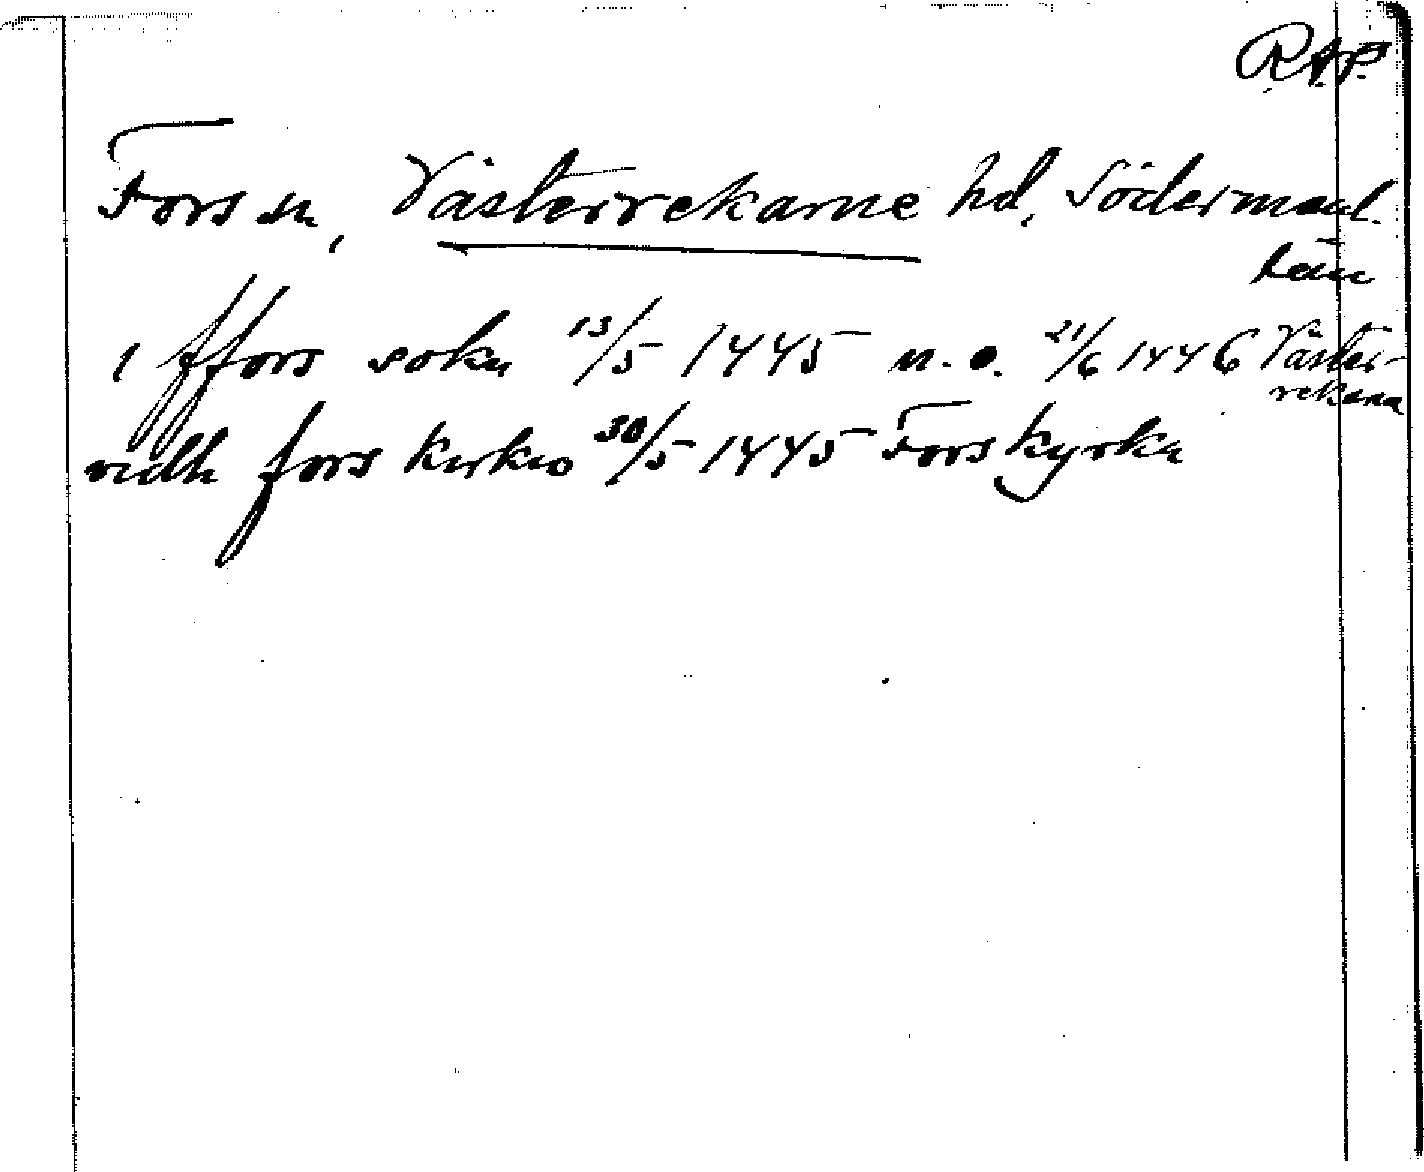 RAP.
Fors sn, Västerrekarne hd, Södermanl.
län
i ffors sokn 13/5 1445 n.o. 21/6 1446 Väster-
rekarna
vidh fors kirkio 30/5 1445 Fors kyrka